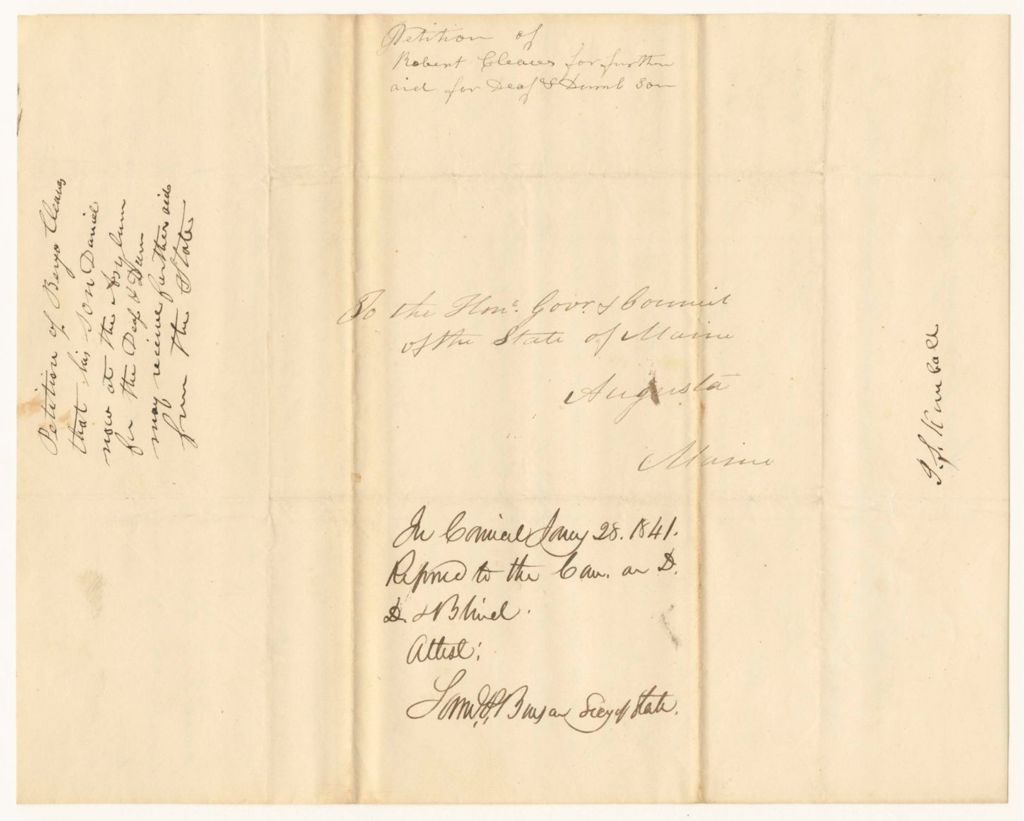 Petition of
Robert Cleaves for further
aid for Deaf & Dumb Son
Petition of Benjn Cleaves
that his son Daniel
now at the Asylum
for the Deaf & Dum
may receive further aid
from the State
To the Hon. Govr. & Council
of the State of Maine
Augusta
Maine
In Council Jany 28. 1841.
Referred to the Com. on D.
D. & Blind.
Attest:
Saml. P. Benson Secy of State.
Kimball